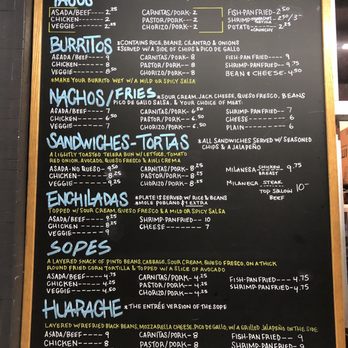 TACOS
ASADA/BEEF 2.25 CARNITAS/PORK 2 FISH-PAN FRIED 2.50
CHICKEN 2 PASTOR/PORK 2 SHRIMP-PAN FRIED
VEGGIE 2 CHORIZO/PORK 2 POTATO-CRUNCHY
BURRITOS * CONTAINS RICE, BEANS, CILANTRO & ONIONS
* SERVED W/A SIDE OF CHIPS & PICO DE GALLO
ASADA/BEEF 9 CARNITAS/PORK 8 FISH-PAN FRIED 9
CHICKEN 8 PASTOR/PORK 8 SHRIMP-PAN FRIED 9
VEGGIE 8.50 CHORIZO/PORK 8 BEAN & CHEESE 4.50
MAKE YOUR BURRITO WET W/A MILD OR SPICY SALSA
NACHOS/FRIES * SOUR CREAM, JACK CHEESE, QUESO FRESCO, BEANS
PICO DE GALLO SALSA, & YOUR CHOICE OF MEAT:
ASADA/BEEF 7 CARNITAS/PORK 6.50 SHRIMP-PAN FRIED 7
CHICKEN 6.50 PASTOR/PORK 6.50 CHEESE 6
VEGGIE 6.50 CHORIZO/PORK 6.50 PLAIN 6
SANDWICHES-TORTAS * ALL SANDWICHES SERVED W/SEASONED
CHIPS & A JALAPEÑO
A LIGHTLY TOASTED TELERA BUN W/LETTUCE, TOMATO
RED ONION, AVOCADO, QUESO FRESCO & AHLI CREMA
ASADA-NO QUESO CARNITAS/PORK 8.25 MILANESA CHICKEN BREAST 9.75
CHICKEN PASTOR/PORK 8.25 MILANECA STEAK TOP SIRLOIN BEEF 10
VEGGIE CHORIZO/PORK 8.25
ENCHILADAS * PLATE IS SERVED W/RICE & BEANS
* MOLE POBLANO $1 EXTRA
TOPPED W/SOUR CREAM, QUESO FRESCO & MILD OR SPICY SALSA
ASADA/BEEF CARNITAS/PORK 9 SHRIMP-PAN FRIED 10
CHICKEN PASTOR/PORK 9 CHEESE 7
VEGGIE 9 CHORIZO/PORK 9
SOPES
A LAYERED SNACK OF PINTO BEANS, CABBAGE, SOUR CREAM, QUESO FRESCO, ON A THICK
ROUND FRIED CORN TORTILLA & TOPPED W/A SLICE OF AVOCADO
ASADA/BEEF CARNITAS/PORK 4.25 FISH-PAN FRIED 4.75
CHICKEN PASTOR/PORK 4.25 SHRIMP-PAN FRIED 4.75
VEGGIE CHORIZO/PORK 4.25
HUARACHE * THE ENTRÉE VERSION OF THE SOPE
LAYERED W/REFRIED BLACK BEANS, MOZZARELLA CHEESE, PICO DE GALLO, W/A GRILLED JALAPEÑO ON THE SIDE
ASADA/BEEF 9 CARNITAS/PORK 8 FISH-PAN FRIED 9
CHICKEN 8 PASTOR/PORK 8 SHRIMP-PAN FRIED 9
VEGGIE CHORIZO/PORK 8